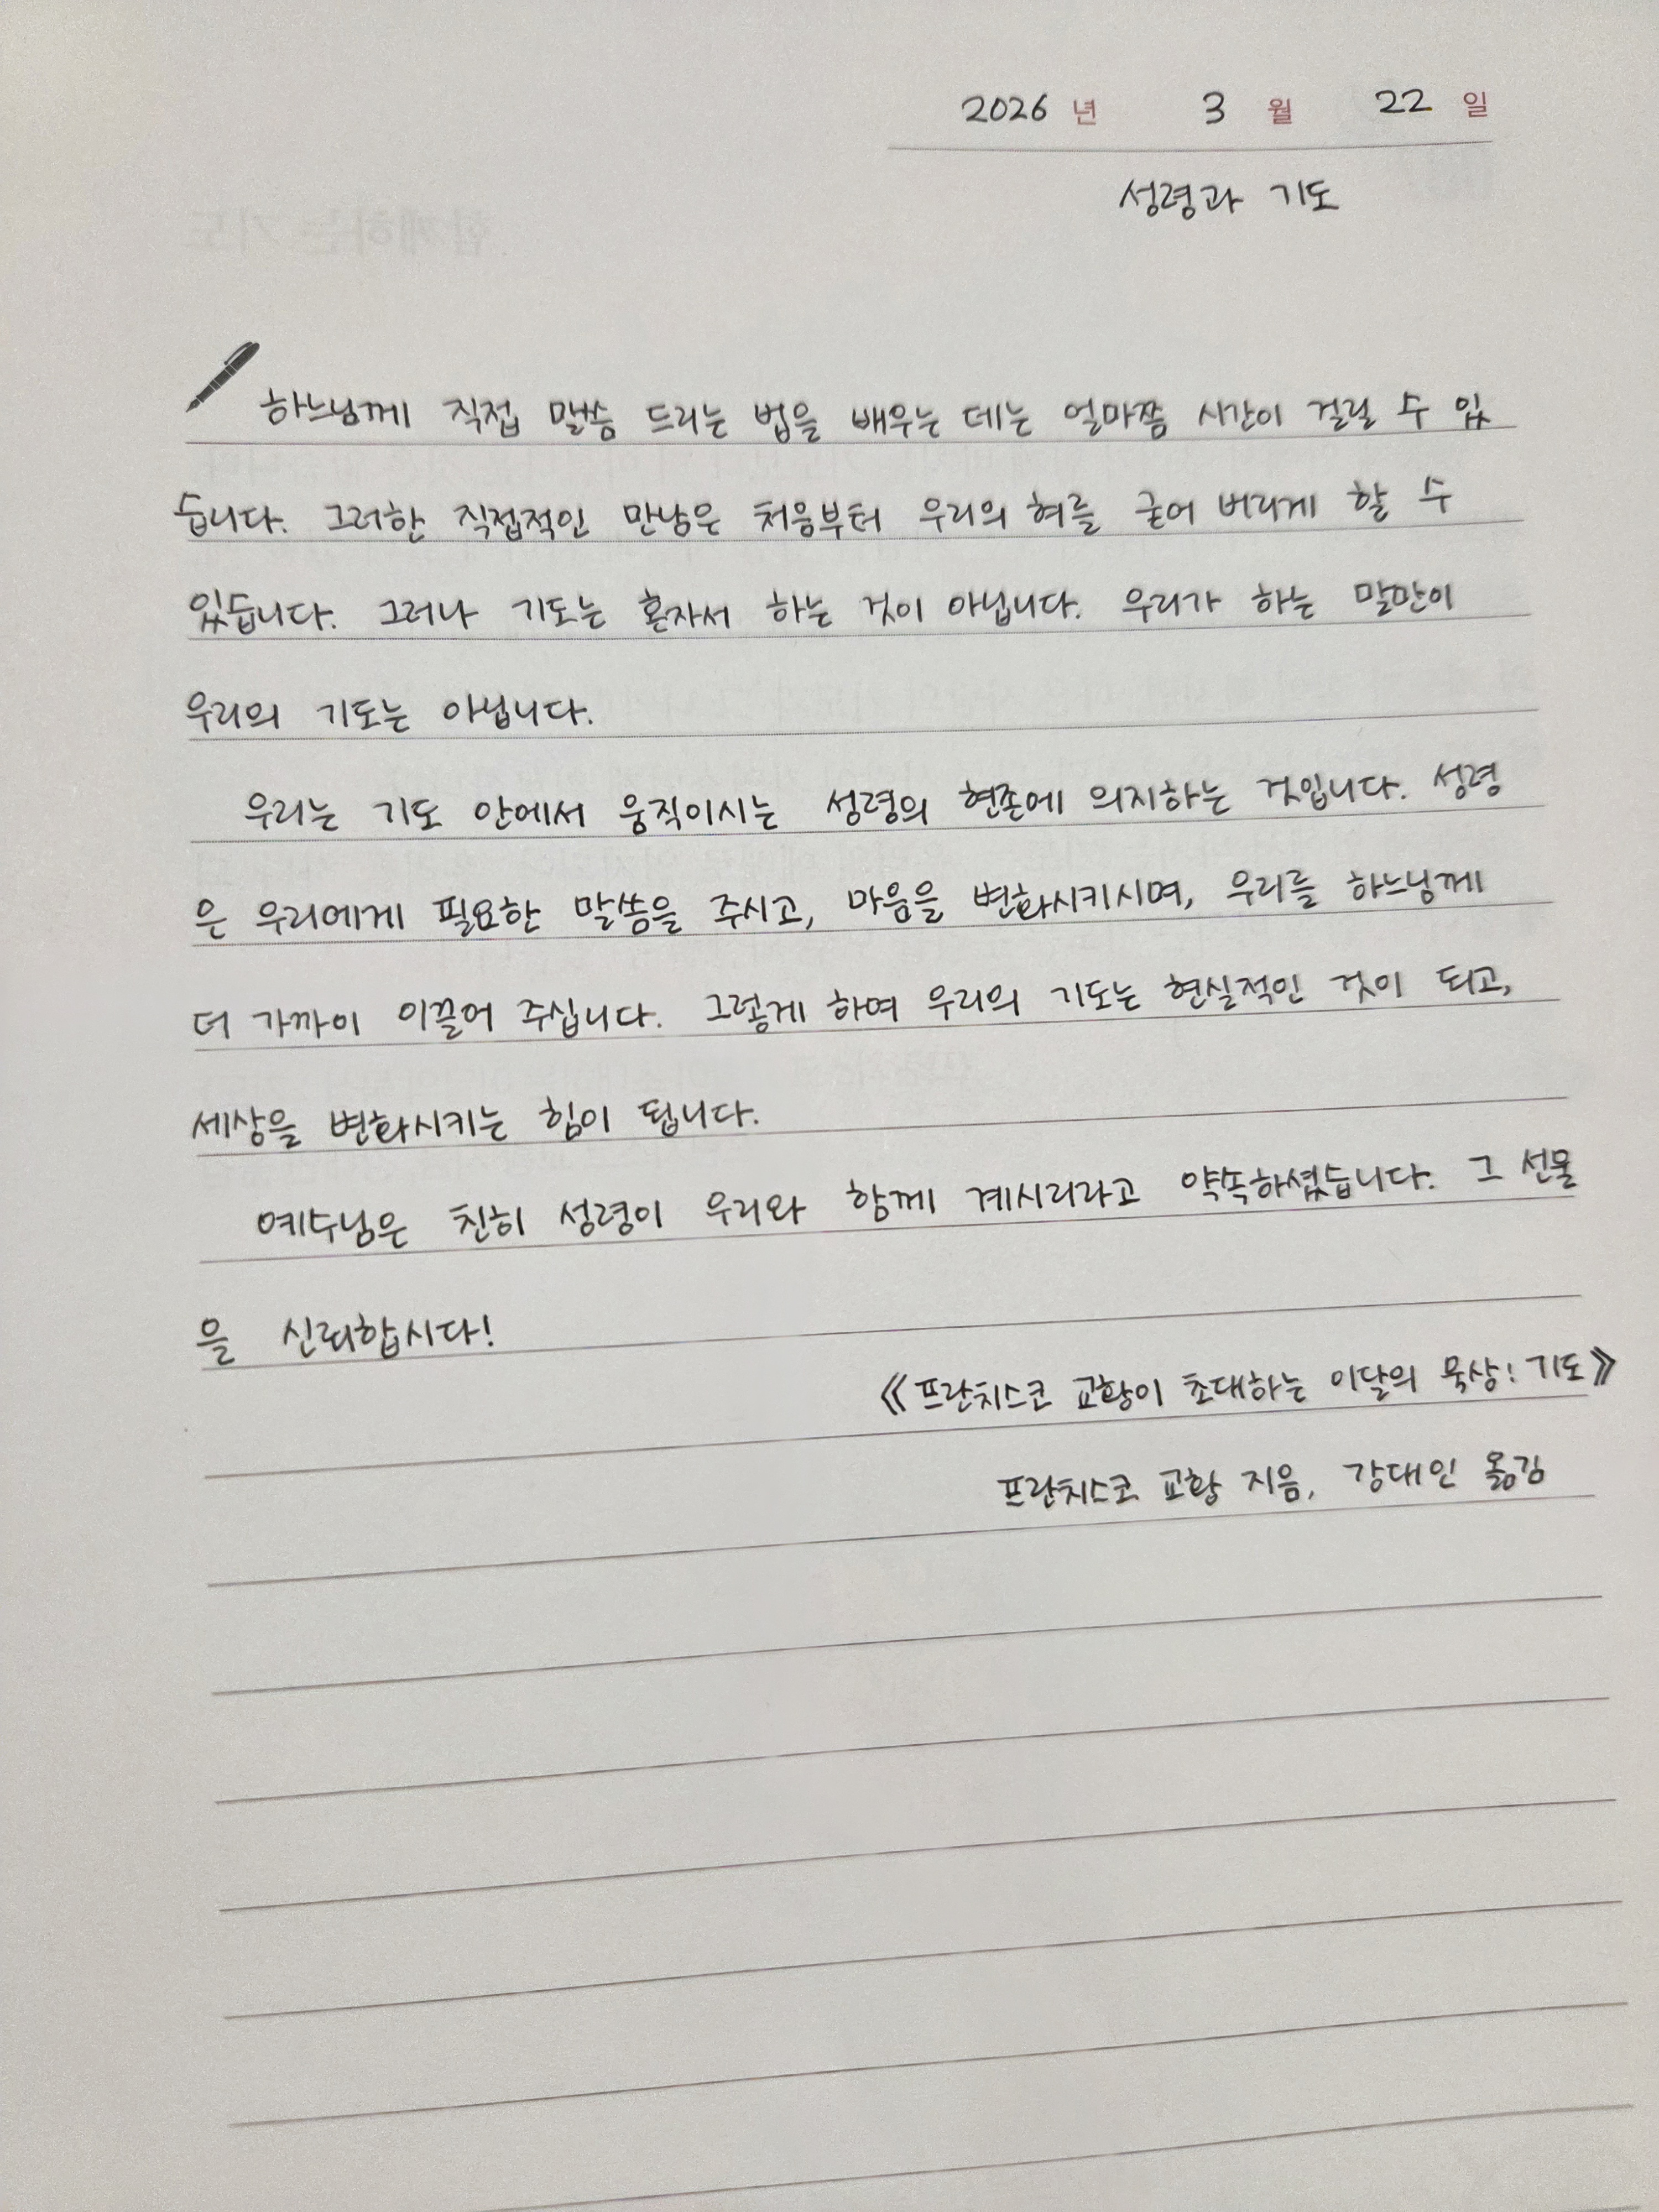 2026 년 3 월 22 일
성령과 기도
하느님께 직접 말씀 드리는 법을 배우는 데는 얼마쯤 시간이 걸릴 수 있
습니다. 그러한 직접적인 만남은 처음부터 우리의 혀를 굳어 버리게 할 수
있습니다. 그러나 기도는 혼자서 하는 것이 아닙니다. 우리가 하는 말만이
우리의 기도는 아닙니다.
우리는 기도 안에서 움직이시는 성령의 현존에 의지하는 것입니다. 성령
은 우리에게 필요한 말씀을 주시고, 마음을 변화시키시며, 우리를 하느님께
더 가까이 이끌어 주십니다. 그렇게 하여 우리의 기도는 현실적인 것이 되고,
세상을 변화시키는 힘이 됩니다.
예수님은 친히 성령이 우리와 함께 계시리라고 약속하셨습니다. 그 선물
을 신뢰합시다!
《프란치스코 교황이 초대하는 이달의 묵상: 기도》
프란치스코 교황 지음, 강대인 옮김